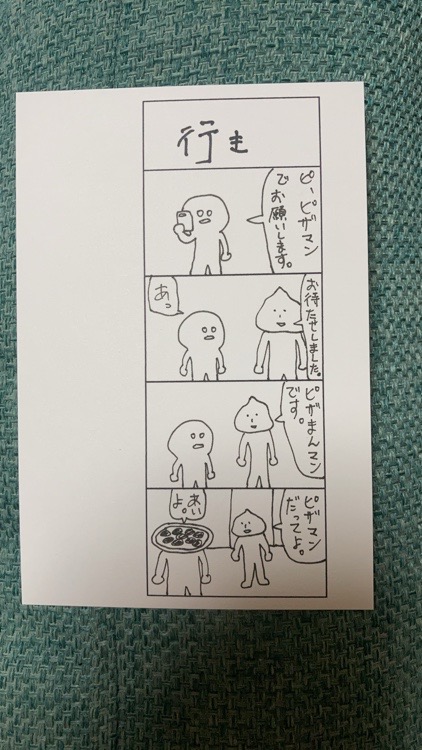 行き
ピ、ピザマン
でお願いします。
お待たせしました。
あっ
ピザまんマン
です。
ピザマン
だってよ。
あい
よ。